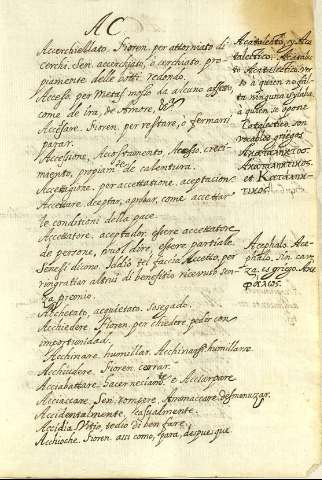 AC
Accerchiellato. Fioren. per attorniato di
cerchi. Sen. accerchiato, o cerchiato pro
piamente delle botti redondo.
Acceso. per Metaf. mosso da alcuno affetto,
come de ira, de Amore, &c.
Accesare. Fioren. per restare, o fermarsi
parar.
Accessione. Accostamento, Accesso, creci-
miento, propiam.te de calentura.
Accettagione. per accettatione, aceptacione
Accettare. aceptar, aprobar, come accettar
le conditioni della pace.
Accettatore. aceptador. essere accettatore
de persone, vuol dire, essere partiale.
Senesi dicono. Iddio tel faccia Accetto, per
ringratiar altrui di benefitio ricevuto sen-
za premio.
Acchetato, acquietato, sosegado.
Acchiedere. Fioren. per chiedere pedir con
importunidad.
Acchinare. humillar. Acchinarsi. humillarse.
Acchiudere. Fioren. cerrar.
Acciabattare. hacer neciam.te o
Acciaccare. Sen. rompere. desmenuzar.
Accidentalmente, casualmente.
Accidia. Vitio, tedio di ben fare.
Acchioche. Fioren. assi como, para, despues que
Acatalectico, y
talectico.
Acatalectico. ver
so à quien no fal-
ta ninguna sylaba,
à quien se opone
Catalectico. son
vocablos griegos
et
Acephalo. Ace-
phalo. sin cave
za. es griego.